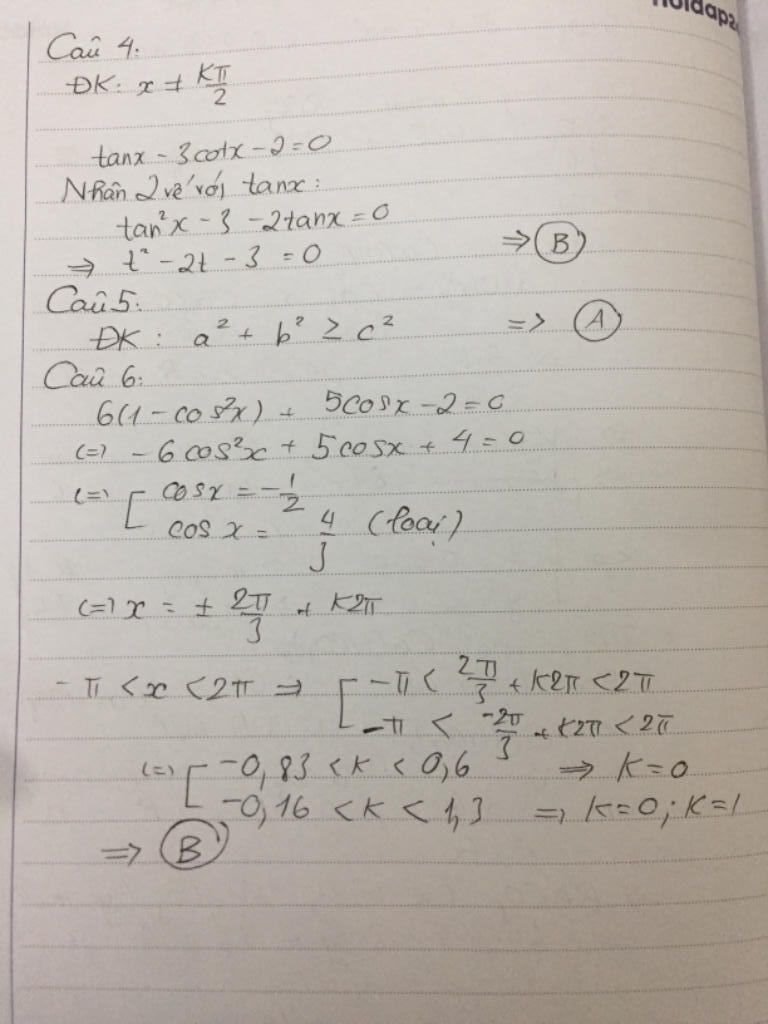 hoidap24
Câu 4:
ĐK: x ≠ kπ/2
tanx - 3cotx - 2 = 0
Nhân 2 vế với tanx:
tan²x - 3 - 2tanx = 0
⇒ t² - 2t - 3 = 0 ⇒ B
Câu 5:
ĐK: a² + b² ≥ c² => A
Câu 6:
6(1 - cos²x) + 5cosx - 2 = 0
(=) - 6cos²x + 5cosx + 4 = 0
(=) [ cosx = -1/2
cos x = 4/3 (loại)
(=) x = ± 2π/3 + k2π
-π < x < 2π ⇒ [ -π < 2π/3 + k2π < 2π
-π < -2π/3 + k2π < 2π
(=) [ -0,83 < k < 0,6 ⇒ k = 0
-0,16 < k < 1,3 ⇒ k = 0; k = 1
⇒ B